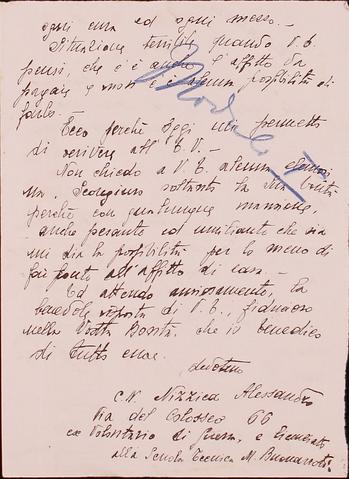 ogni cura ed ogni mezzo. -
Situazione terribile quando V. E.
pensi, che c'è anche l'affitto da
pagare e non c'è alcuna possibilità di
farlo. -
Ecco perchè oggi mi permetto
di scrivere all'E. V. -
Non chiedo a V. E. alcuna elemosi
na. Scongiuro soltanto la Sua
perchè con qualunque mansione,
anche pesante ed umiliante che sia
mi dia la possibilità per lo meno di
far fronte all'affitto di casa. -
Ed attendo ansiosamente, la
benevole risposta di V. E., fiducioso
nella Vostra Bontà, che io benedico
di tutto cuore.
devotmo
C. N. Nizzica Alessandro
Via del Colosseo 66
ex Volontario di guerra, e
alla Scuola Tecnica M. Buonarroti